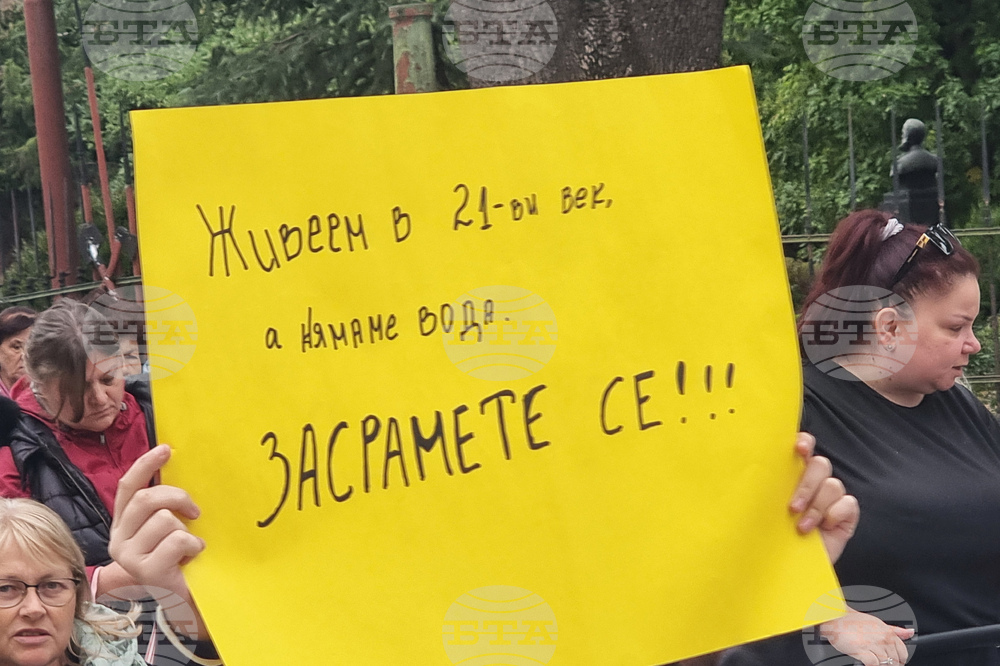 Живеем в 21-ви век,
а нямаме вода.
ЗАСРАМЕТЕ СЕ!!!
БТА
БТА
БТА
БТА
БТА
БТА
БТА
БТА
БТА